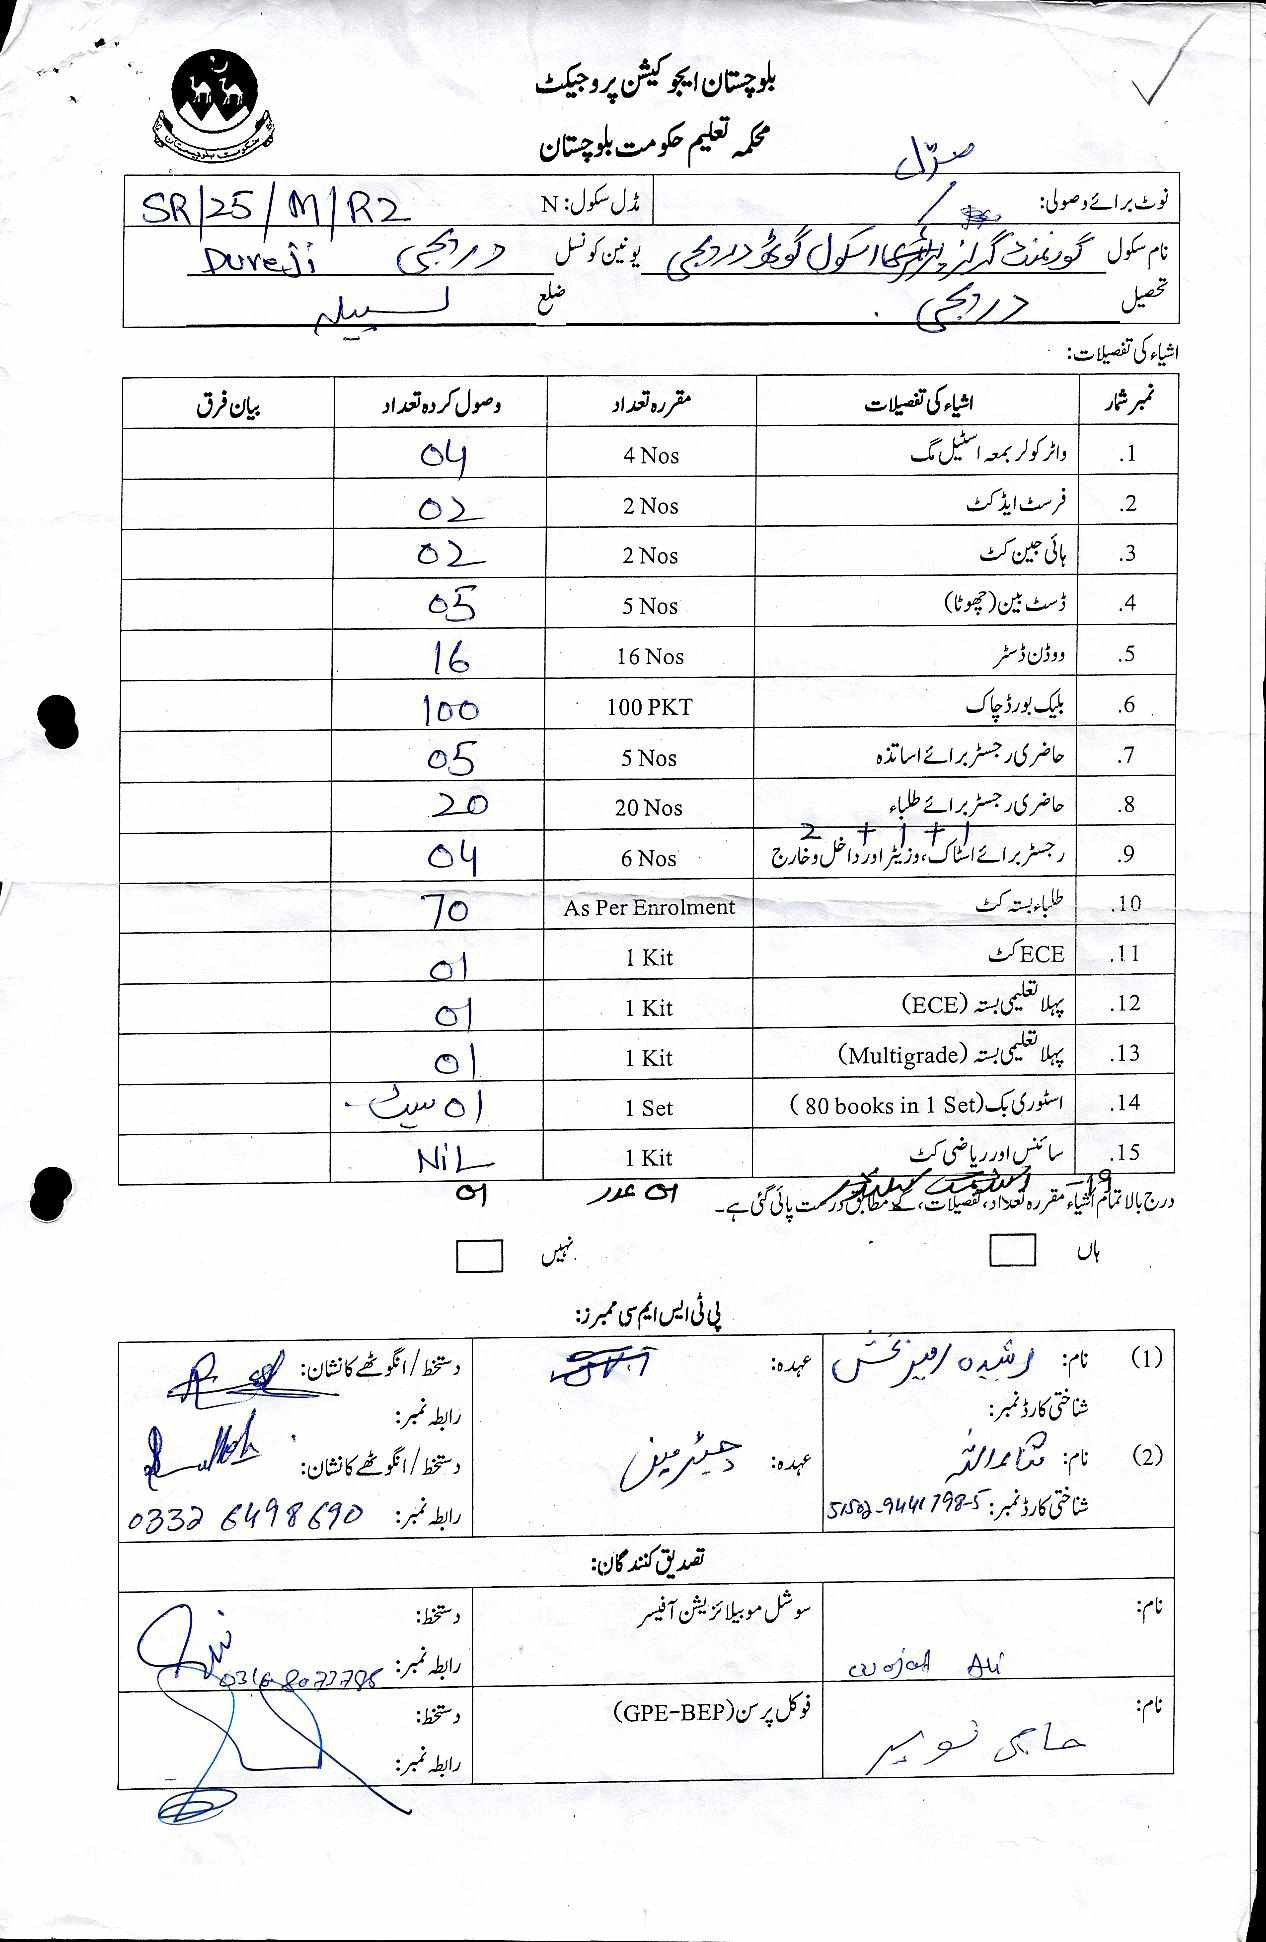 بلوچستان ایجوکیشن پروجیکٹ
محکمہ تعلیم حکومت بلوچستان
حکومت بلوچستان
مڈل
نوٹ برائے وصولی: مڈل سکول: N SR/25/M/R2
نام سکول گورنمنٹ گرلز پرائمری اسکول گوٹھ دریجی یونین کونسل دریجی Dureji
تحصیل دریجی ضلع لسبیلہ
اشیاء کی تفصیلات:
نمبر شمار اشیاء کی تفصیلات مقررہ تعداد وصول کردہ تعداد بیان فرق
1. واٹر کولر بمعہ اسٹیل مگ 4 Nos 04
2. فرسٹ ایڈ کٹ 2 Nos 02
3. ہائی جین کٹ 2 Nos 02
4. ڈسٹ بین (چھوٹا) 5 Nos 05
5. ووڈن ڈسٹر 16 Nos 16
6. بلیک بورڈ چاک 100 PKT 100
7. حاضری رجسٹر برائے اساتذہ 5 Nos 05
8. حاضری رجسٹر برائے طلباء 20 Nos 20
2 + 1 + 1
9. رجسٹر برائے اسٹاک، وزیٹر اور داخل و خارج 6 Nos 04
10. طلباء بستہ کٹ As Per Enrolment 70
11. ECE کٹ 1 Kit 01
12. پہلا تعلیمی بستہ (ECE) 1 Kit 01
13. پہلا تعلیمی بستہ (Multigrade) 1 Kit 01
14. اسٹوری بک (80 books in 1 Set) 1 Set 01 سیٹ
15. سائنس اور ریاضی کٹ 1 Kit NiL
01 عدد 01
درج بالا تمام اشیاء مقررہ تعداد، تفصیلات، کے مطابق درست پائی گئی ہے۔
ہاں نہیں
پی ٹی ایس ایم سی ممبرز:
(1) نام: رشیدہ امیر بخش عہدہ: دستخط/انگوٹھے کا نشان:
شناختی کارڈ نمبر: رابطہ نمبر:
(2) نام: ثناء اللہ عہدہ: چیئرمین دستخط/انگوٹھے کا نشان:
شناختی کارڈ نمبر: 51502-9441798-5 رابطہ نمبر: 0332 6498690
تصدیق کنندگان:
نام: Wajid Ali سوشل موبیلائزیشن آفیسر دستخط:
رابطہ نمبر: 03168077785
نام: حاجی نوید فوکل پرسن (GPE-BEP) دستخط:
رابطہ نمبر: